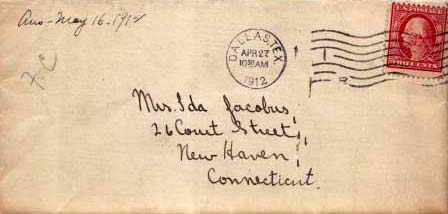 Ans-May 16-1912
DALLAS, TEX.
APR 27
10 30 AM
1912
Mrs. Ida Jacobus,
26 Court Street,
New Haven,
Connecticut.